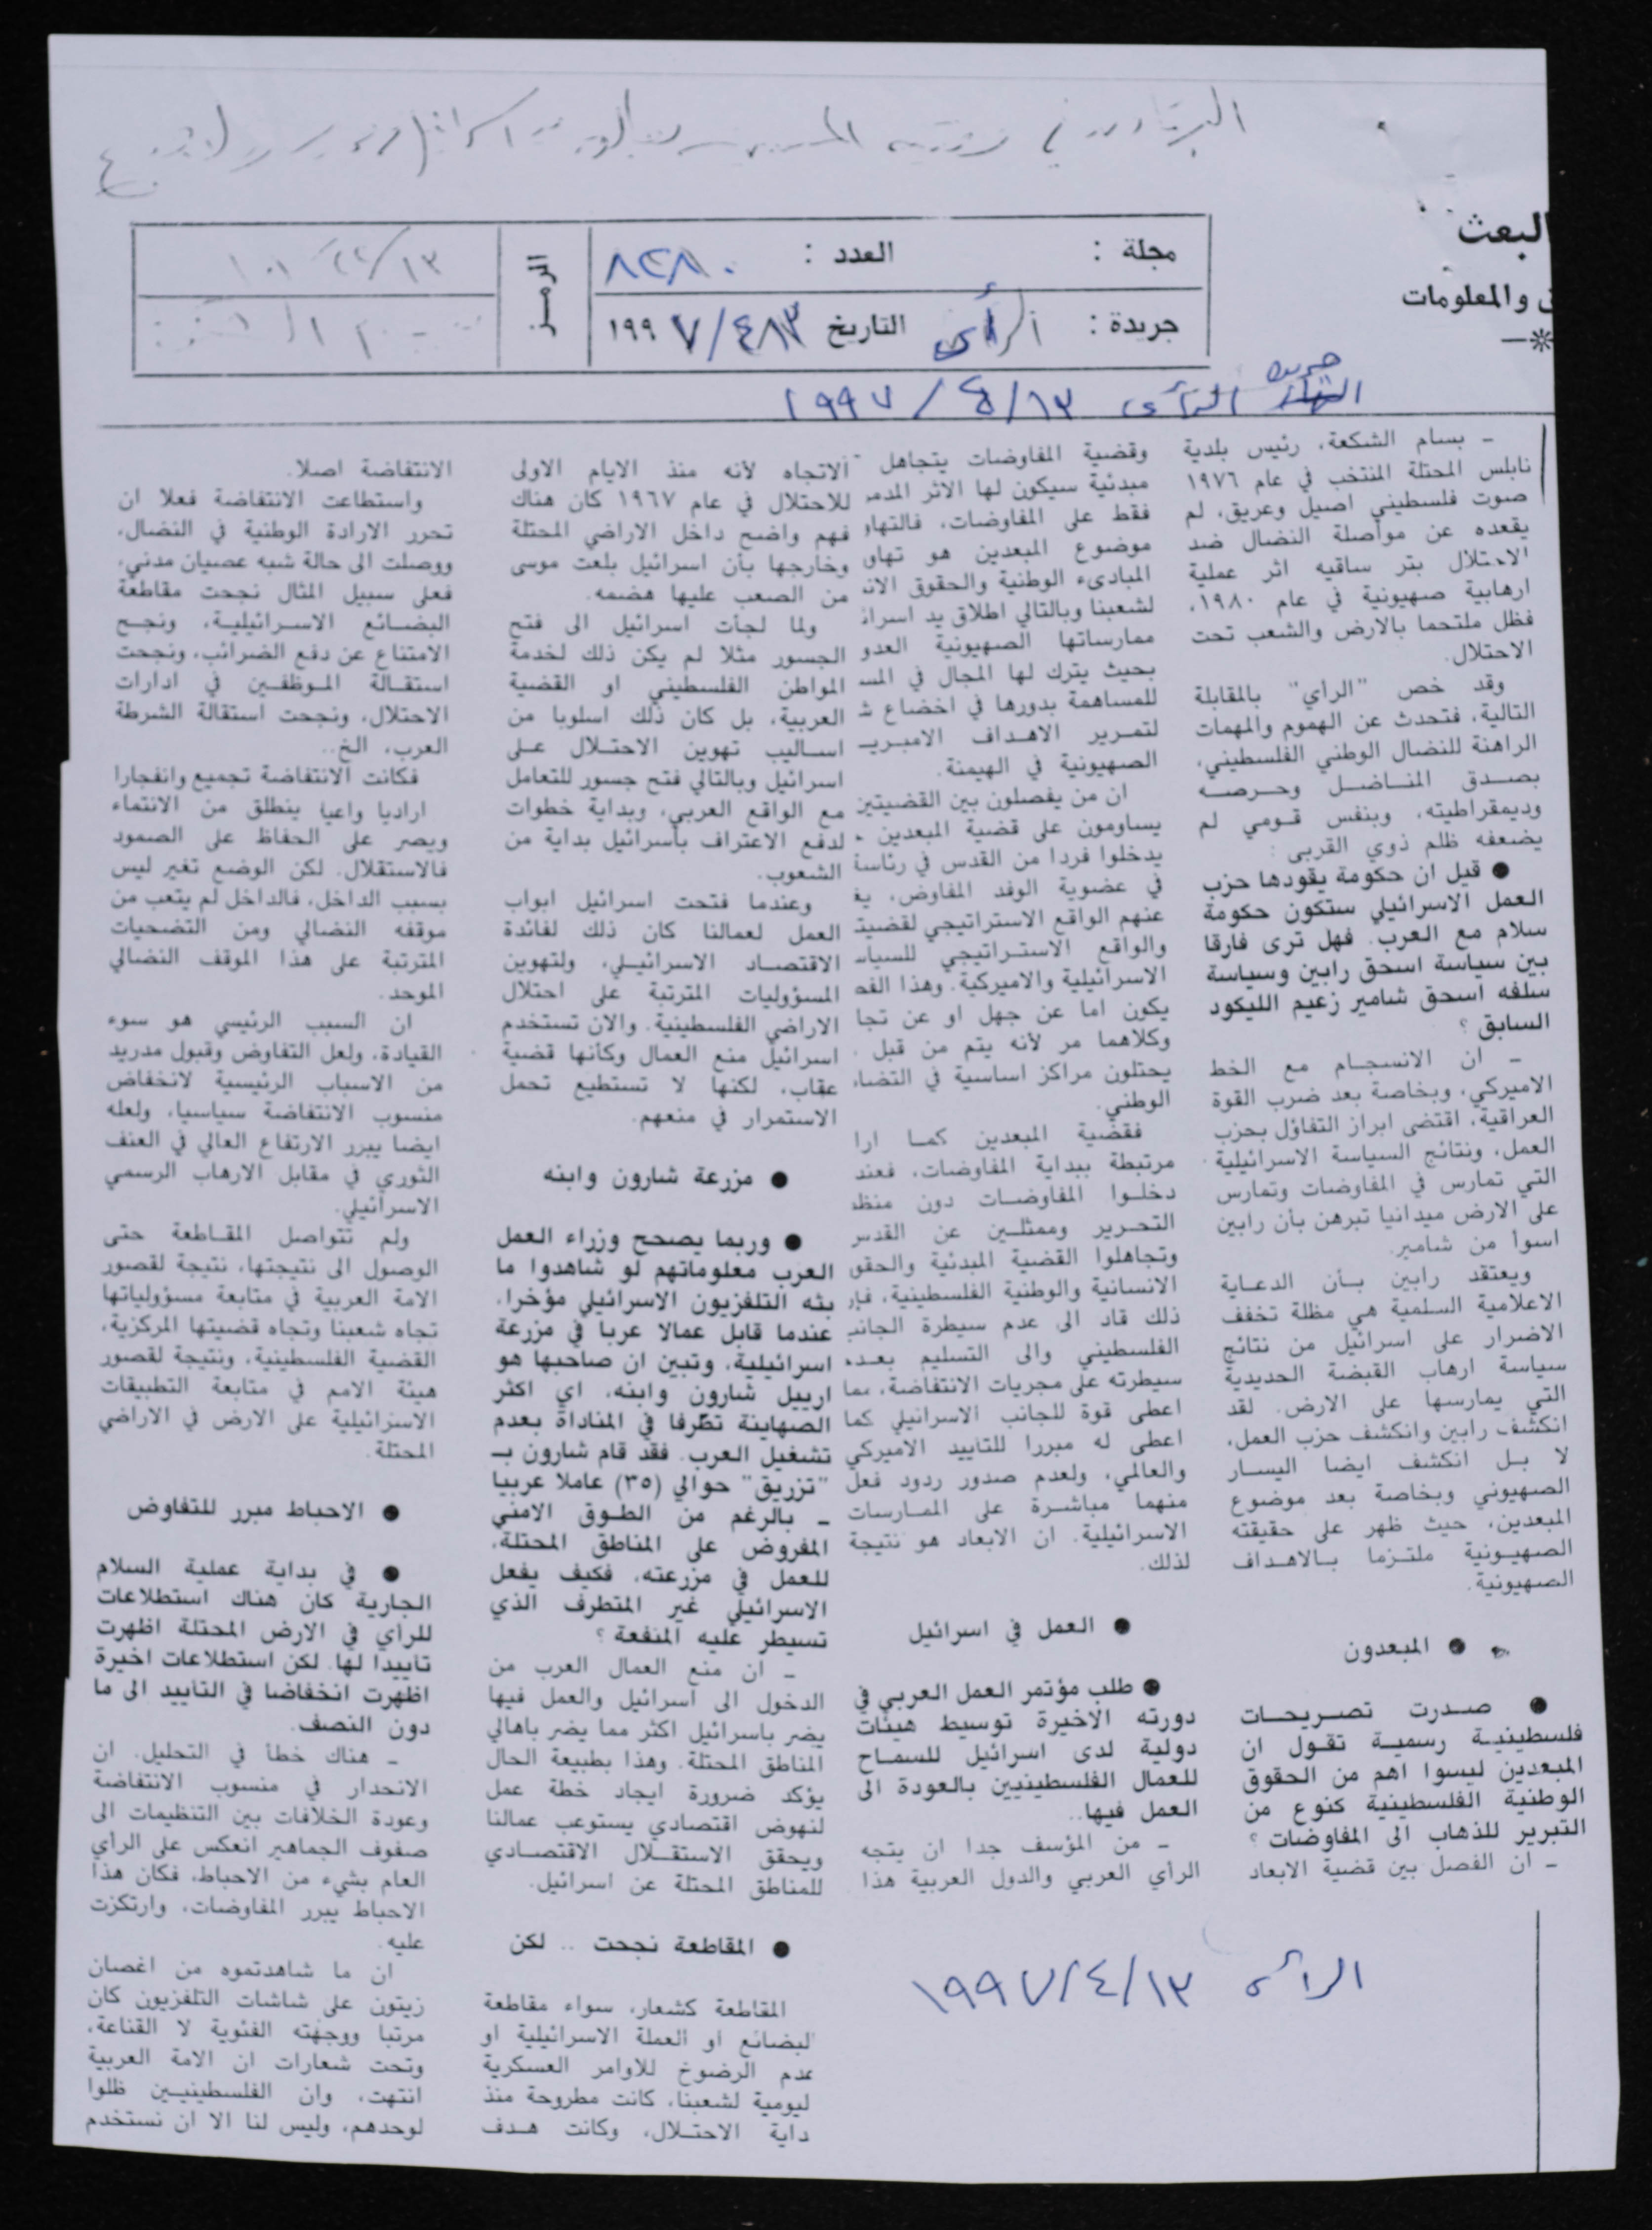 البعث
والمعلومات
مجلة :
العدد :
٨٢٨٠
الرمز
جريدة : الرأي
التاريخ ١٩٩٧/٤/١٣
جريدة
الرأي ١٩٩٧/٤/١٣
ـ بسام الشكعة، رئيس بلدية
نابلس المحتلة المنتخب في عام ١٩٧٦
صوت فلسطيني اصيل وعريق، لم
يقعده عن مواصلة النضال ضد
الاحتلال بتر ساقيه اثر عملية
ارهابية صهيونية في عام ١٩٨٠،
فظل ملتحما بالارض والشعب تحت
الاحتلال.
وقد خص "الرأي" بالمقابلة
التالية، فتحدث عن الهموم والمهمات
الراهنة للنضال الوطني الفلسطيني،
بصدق المناضل وحرصه
وديمقراطيته، وبنفس قومي لم
يضعفه ظلم ذوي القربى :
● قيل ان حكومة يقودها حزب
العمل الاسرائيلي ستكون حكومة
سلام مع العرب. فهل ترى فارقا
بين سياسة اسحق رابين وسياسة
سلفه اسحق شامير زعيم الليكود
السابق ؟
ـ ان الانسجام مع الخط
الاميركي، وبخاصة بعد ضرب القوة
العراقية، اقتضى ابراز التفاؤل بحزب
العمل، ونتائج السياسة الاسرائيلية
التي تمارس في المفاوضات وتمارس
على الارض ميدانيا تبرهن بأن رابين
اسوأ من شامير.
ويعتقد رابين بأن الدعاية
الاعلامية السلمية هي مظلة تخفف
الاضرار على اسرائيل من نتائج
سياسة ارهاب القبضة الحديدية
التي يمارسها على الارض. لقد
انكشف رابين وانكشف حزب العمل،
لا بل انكشف ايضا اليسار
الصهيوني وبخاصة بعد موضوع
المبعدين، حيث ظهر على حقيقته
الصهيونية ملتزما بالاهداف
الصهيونية.
● المبعدون
● صدرت تصريحات
فلسطينية رسمية تقول ان
المبعدين ليسوا اهم من الحقوق
الوطنية الفلسطينية كنوع من
التبرير للذهاب الى المفاوضات ؟
ـ ان الفصل بين قضية الابعاد
وقضية المفاوضات يتجاهل
مبدئية سيكون لها الاثر
فقط على المفاوضات،
موضوع المبعدين هو
المبادىء الوطنية والحقوق
لشعبنا وبالتالي اطلاق يد
ممارساتها الصهيونية
بحيث يترك لها المجال في
للمساهمة بدورها في اخضاع
لتمرير الاهداف
الصهيونية في الهيمنة.
ان من يفصلون بين القضيتين
يساومون على قضية المبعدين
يدخلوا فردا من القدس في رئاسة
في عضوية الوفد المفاوض،
عنهم الواقع الاستراتيجي
والواقع الاستراتيجي
الاسرائيلية والاميركية. وهذا
يكون اما عن جهل او عن
وكلاهما مر لأنه يتم من قبل
يحتلون مراكز اساسية في
الوطني.
فقضية المبعدين كما
مرتبطة ببداية المفاوضات،
دخلوا المفاوضات دون
التحرير وممثلين عن
وتجاهلوا القضية المبدئية
الانسانية والوطنية الفلسطينية،
ذلك قاد الى عدم سيطرة
الفلسطيني والى التسليم
سيطرته على مجريات الانتفاضة، مما
اعطى قوة للجانب الاسرائيلي كما
اعطى له مبررا للتأييد الاميركي
والعالمي، ولعدم صدور ردود فعل
منهما مباشرة على الممارسات
الاسرائيلية. ان الابعاد هو نتيجة
لذلك.
● العمل في اسرائيل
● طلب مؤتمر العمل العربي في
دورته الاخيرة توسيط هيئات
دولية لدى اسرائيل للسماح
للعمال الفلسطينيين بالعودة الى
العمل فيها..
ـ من المؤسف جدا ان يتجه
الرأي العربي والدول العربية هذا
الاتجاه لأنه منذ الايام الاولى
للاحتلال في عام ١٩٦٧ كان هناك
فهم واضح داخل الاراضي المحتلة
وخارجها بأن اسرائيل بلعت موسى
من الصعب عليها هضمه.
ولما لجأت اسرائيل الى فتح
الجسور مثلا لم يكن ذلك لخدمة
المواطن الفلسطيني او القضية
العربية، بل كان ذلك اسلوبا من
اساليب تهوين الاحتلال على
اسرائيل وبالتالي فتح جسور للتعامل
مع الواقع العربي، وبداية خطوات
لدفع الاعتراف بأسرائيل بداية من
الشعوب.
وعندما فتحت اسرائيل ابواب
العمل لعمالنا كان ذلك لفائدة
الاقتصاد الاسرائيلي، ولتهوين
المسؤوليات المترتبة على احتلال
الاراضي الفلسطينية. والان تستخدم
اسرائيل منع العمال وكأنها قضية
عقاب، لكنها لا تستطيع تحمل
الاستمرار في منعهم.
● مزرعة شارون وابنه
● وربما يصحح وزراء العمل
العرب معلوماتهم لو شاهدوا ما
بثه التلفزيون الاسرائيلي مؤخرا،
عندما قابل عمالا عربا في مزرعة
اسرائيلية، وتبين ان صاحبها هو
ارييل شارون وابنه، اي اكثر
الصهاينة تطرفا في المناداة بعدم
تشغيل العرب. فقد قام شارون بـ
"تزريق" حوالي (٣٥) عاملا عربيا
ـ بالرغم من الطوق الامني
المفروض على المناطق المحتلة،
للعمل في مزرعته، فكيف يفعل
الاسرائيلي غير المتطرف الذي
تسيطر عليه المنفعة ؟
ـ ان منع العمال العرب من
الدخول الى اسرائيل والعمل فيها
يضر باسرائيل اكثر مما يضر باهالي
المناطق المحتلة. وهذا بطبيعة الحال
يؤكد ضرورة ايجاد خطة عمل
لنهوض اقتصادي يستوعب عمالنا
ويحقق الاستقلال الاقتصادي
للمناطق المحتلة عن اسرائيل.
● المقاطعة نجحت .. لكن
المقاطعة كشعار، سواء مقاطعة
لبضائع او العملة الاسرائيلية او
عدم الرضوخ للاوامر العسكرية
ليومية لشعبنا، كانت مطروحة منذ
داية الاحتلال، وكانت هدف
الانتفاضة اصلا.
واستطاعت الانتفاضة فعلا ان
تحرر الارادة الوطنية في النضال،
ووصلت الى حالة شبه عصيان مدني،
فعلى سبيل المثال نجحت مقاطعة
البضائع الاسرائيلية، ونجح
الامتناع عن دفع الضرائب، ونجحت
استقالة الموظفين في ادارات
الاحتلال، ونجحت استقالة الشرطة
العرب، الخ..
فكانت الانتفاضة تجميع وانفجارا
اراديا واعيا ينطلق من الانتماء
ويصر على الحفاظ على الصمود
فالاستقلال. لكن الوضع تغير ليس
بسبب الداخل، فالداخل لم يتعب من
موقفه النضالي ومن التضحيات
المترتبة على هذا الموقف النضالي
الموحد.
ان السبب الرئيسي هو سوء
القيادة، ولعل التفاوض وقبول مدريد
من الاسباب الرئيسية لانخفاض
منسوب الانتفاضة سياسيا، ولعله
ايضا يبرر الارتفاع العالي في العنف
الثوري في مقابل الارهاب الرسمي
الاسرائيلي.
ولم تتواصل المقاطعة حتى
الوصول الى نتيجتها، نتيجة لقصور
الامة العربية في متابعة مسؤولياتها
تجاه شعبنا وتجاه قضيتها المركزية،
القضية الفلسطينية، ونتيجة لقصور
هيئة الامم في متابعة التطبيقات
الاسرائيلية على الارض في الاراضي
المحتلة.
● الاحباط مبرر للتفاوض
● في بداية عملية السلام
الجارية كان هناك استطلاعات
للرأي في الارض المحتلة اظهرت
تأييدا لها. لكن استطلاعات اخيرة
اظهرت انخفاضا في التأييد الى ما
دون النصف.
ـ هناك خطأ في التحليل. ان
الانحدار في منسوب الانتفاضة
وعودة الخلافات بين التنظيمات الى
صفوف الجماهير انعكس على الرأي
العام بشيء من الاحباط، فكان هذا
الاحباط يبرر المفاوضات، وارتكزت
عليه.
ان ما شاهدتموه من اغصان
زيتون على شاشات التلفزيون كان
مرتبا ووجهته الفئوية لا القناعة،
وتحت شعارات ان الامة العربية
انتهت، وان الفلسطينيين ظلوا
لوحدهم، وليس لنا الا ان نستخدم
الرأي ١٩٩٧/٤/١٣